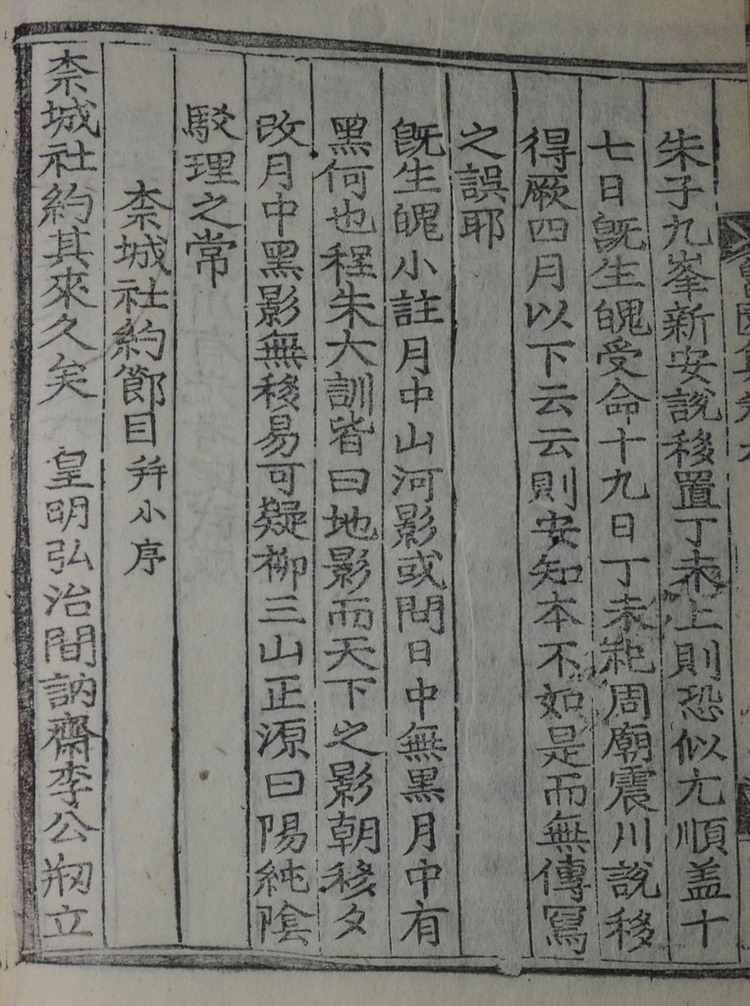 朱子九峯新安說移置丁未上則恐似尤順盖十
七日旣生魄受命十九日丁未祀周廟震川說移
得厥四月以下云云則安知本不如是而無傳寫
之誤耶
旣生魄小註月中山河影或問日中無黑月中有
黑何也程朱大訓皆曰地影而天下之影朝移夕
改月中黑影無移易可疑柳三山正源曰陽純陰
駁理之常
柰城社約節目 幷小序
柰城社約其來久矣 皇明弘治間訥齋李公𣃼立